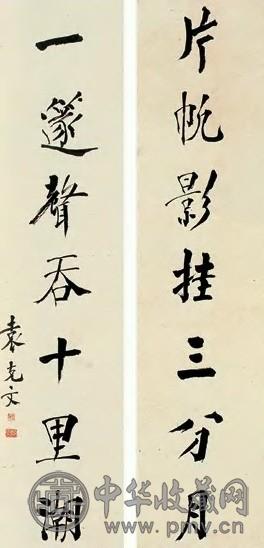 片帆影挂三分月
一篴聲吞十里潮
袁克文
中华收藏网